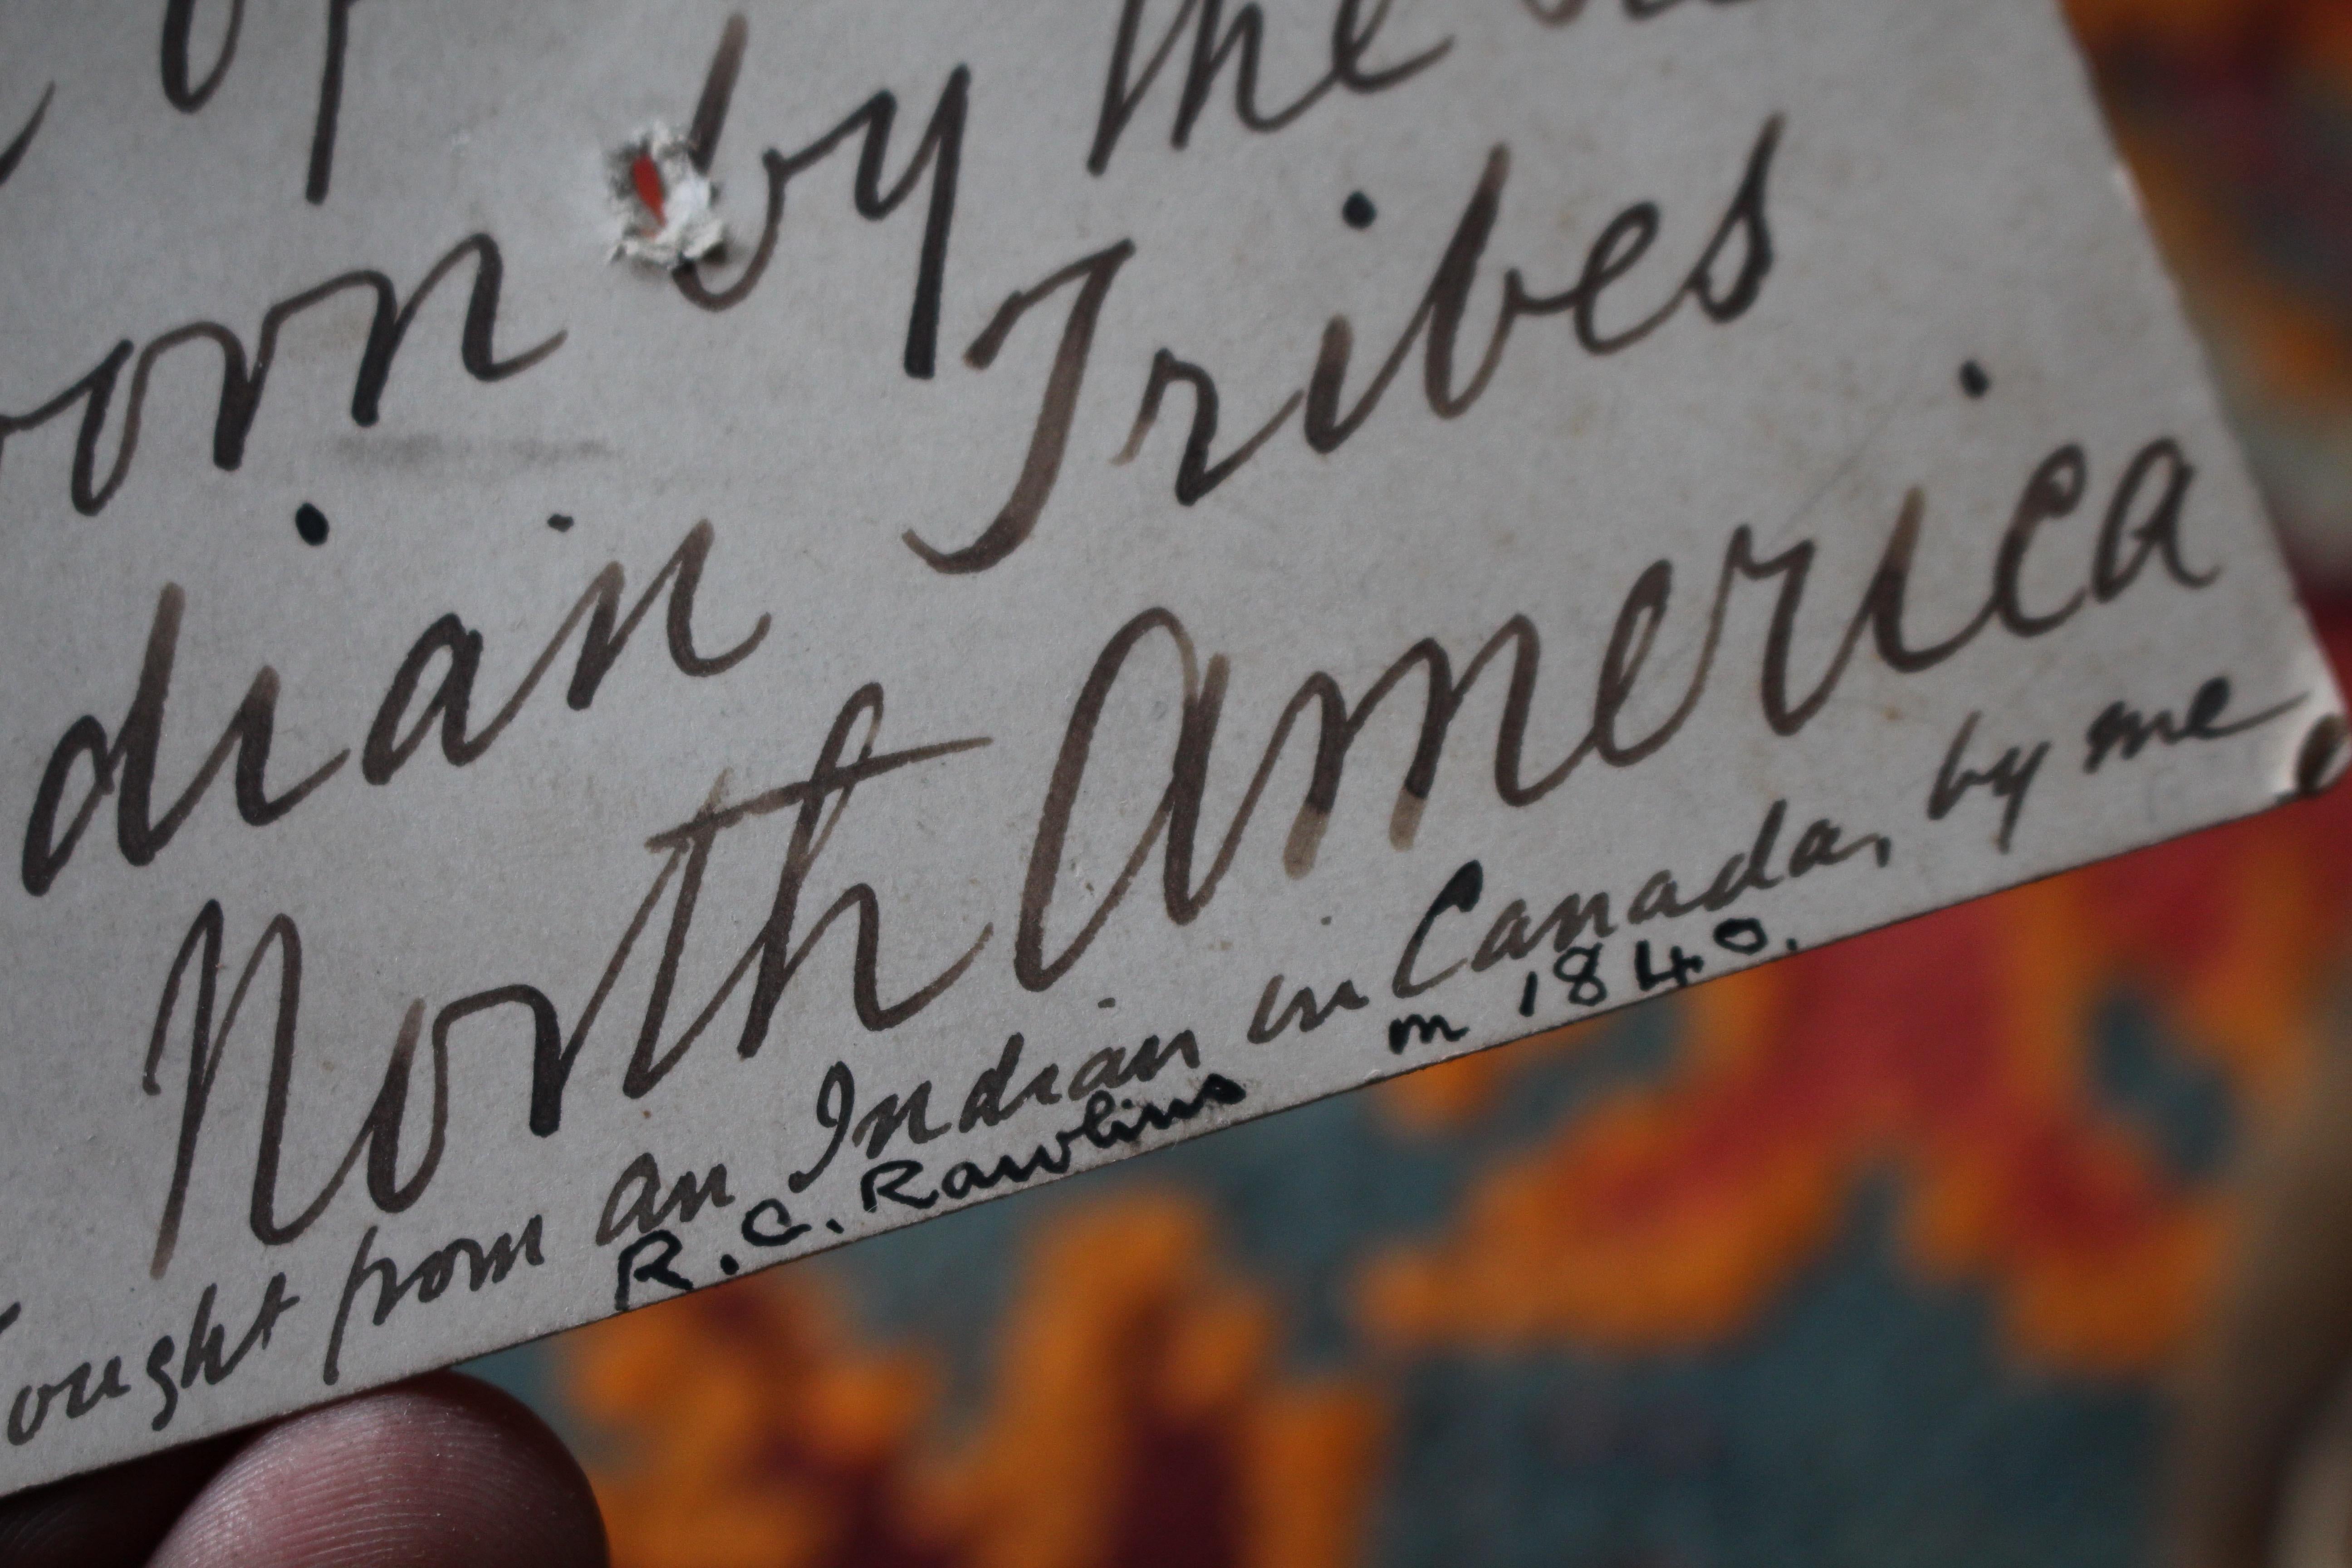 of
orn by the
dian Tribes
North America
ought from an Indian in Canada, by me
R. C. Rawlins in 1840.